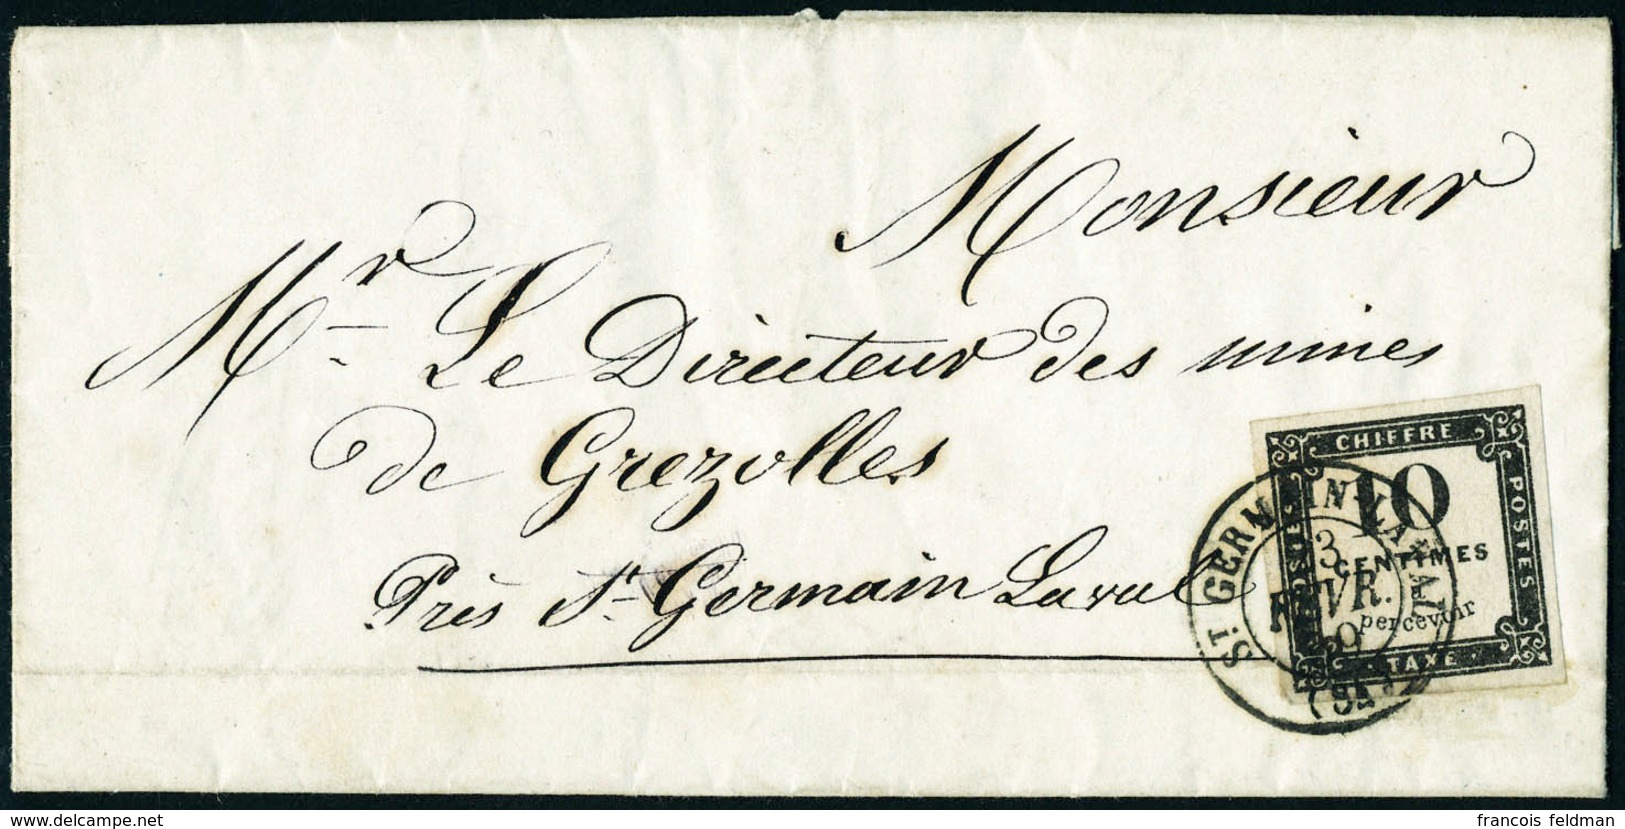 Monsieur
Mr Le Directeur des mines
de Grezolles
Près St Germain Laval
CHIFFRE
10
CENTIMES
percevoir
TAXE
POSTES
ST GERMAIN-LAVAL
3
FEVR.
60
delcampe.net
francois feldman